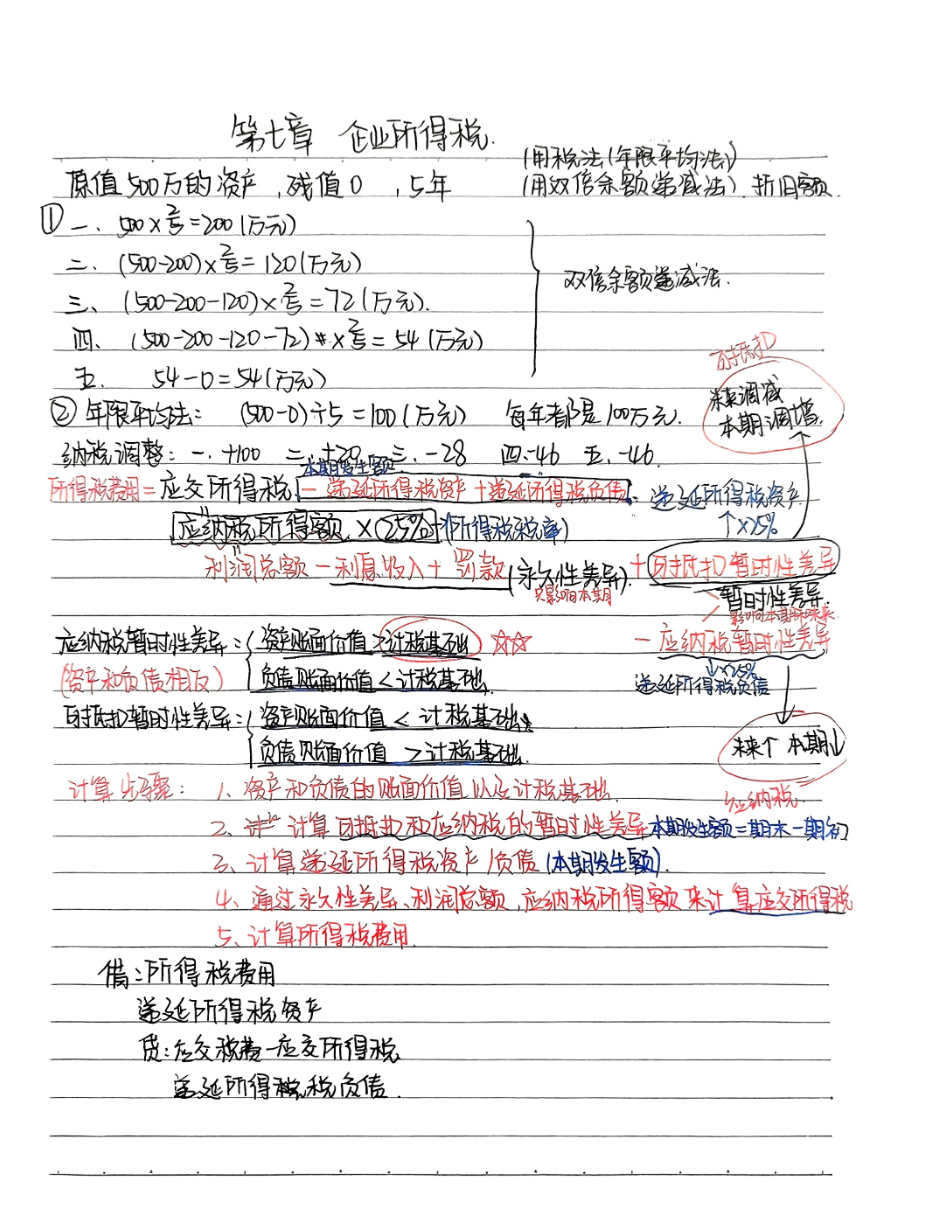 第七章 企业所得税.
(用税法(年限平均法))
原值500万的资产,残值0,5年 (用双倍余额递减法)折旧额.
① 一、500×2/5=200(万元)
二、(500-200)×2/5=120(万元)
双倍余额递减法.
三、(500-200-120)×2/5=72(万元).
四、(500-200-120-72)×2/5=54(万元)
五. 54-0=54(万元)
可抵扣
未来调减
本期调增.
② 年限平均法: (500-0)÷5=100(万元) 每年都是100万元.
纳税调整: 一.+100 二.+20 三.-28 四.-46 五.-46.
本期发生额
所得税费用=应交所得税 -递延所得税资产+递延所得税负债. 递延所得税资产
应纳税所得额×(25%) (所得税税率) ↑×25%
利润总额-利息收入+罚款(永久性差异)+可抵扣暂时性差异
只影响本期
暂时性差异.
影响本期和未来
应纳税暂时性差异={资产账面价值>计税基础 ☆☆ -应纳税暂时性差异
↓×25%
(资产和负债相反) 负债账面价值<计税基础. 递延所得税负债
可抵扣暂时性差异={资产账面价值<计税基础.
负债账面价值>计税基础. 未来↑本期↓
应纳税.
计算步骤: 1、资产和负债的账面价值以及计税基础.
2、计算可抵扣和应纳税的暂时性差异 本期发生额=期末-期初
3、计算递延所得税资产/负债(本期发生额).
4、通过永久性差异、利润总额,应纳税所得额来计算应交所得税
5、计算所得税费用.
借:所得税费用
递延所得税资产
贷:应交税费-应交所得税
递延所得税税负债.